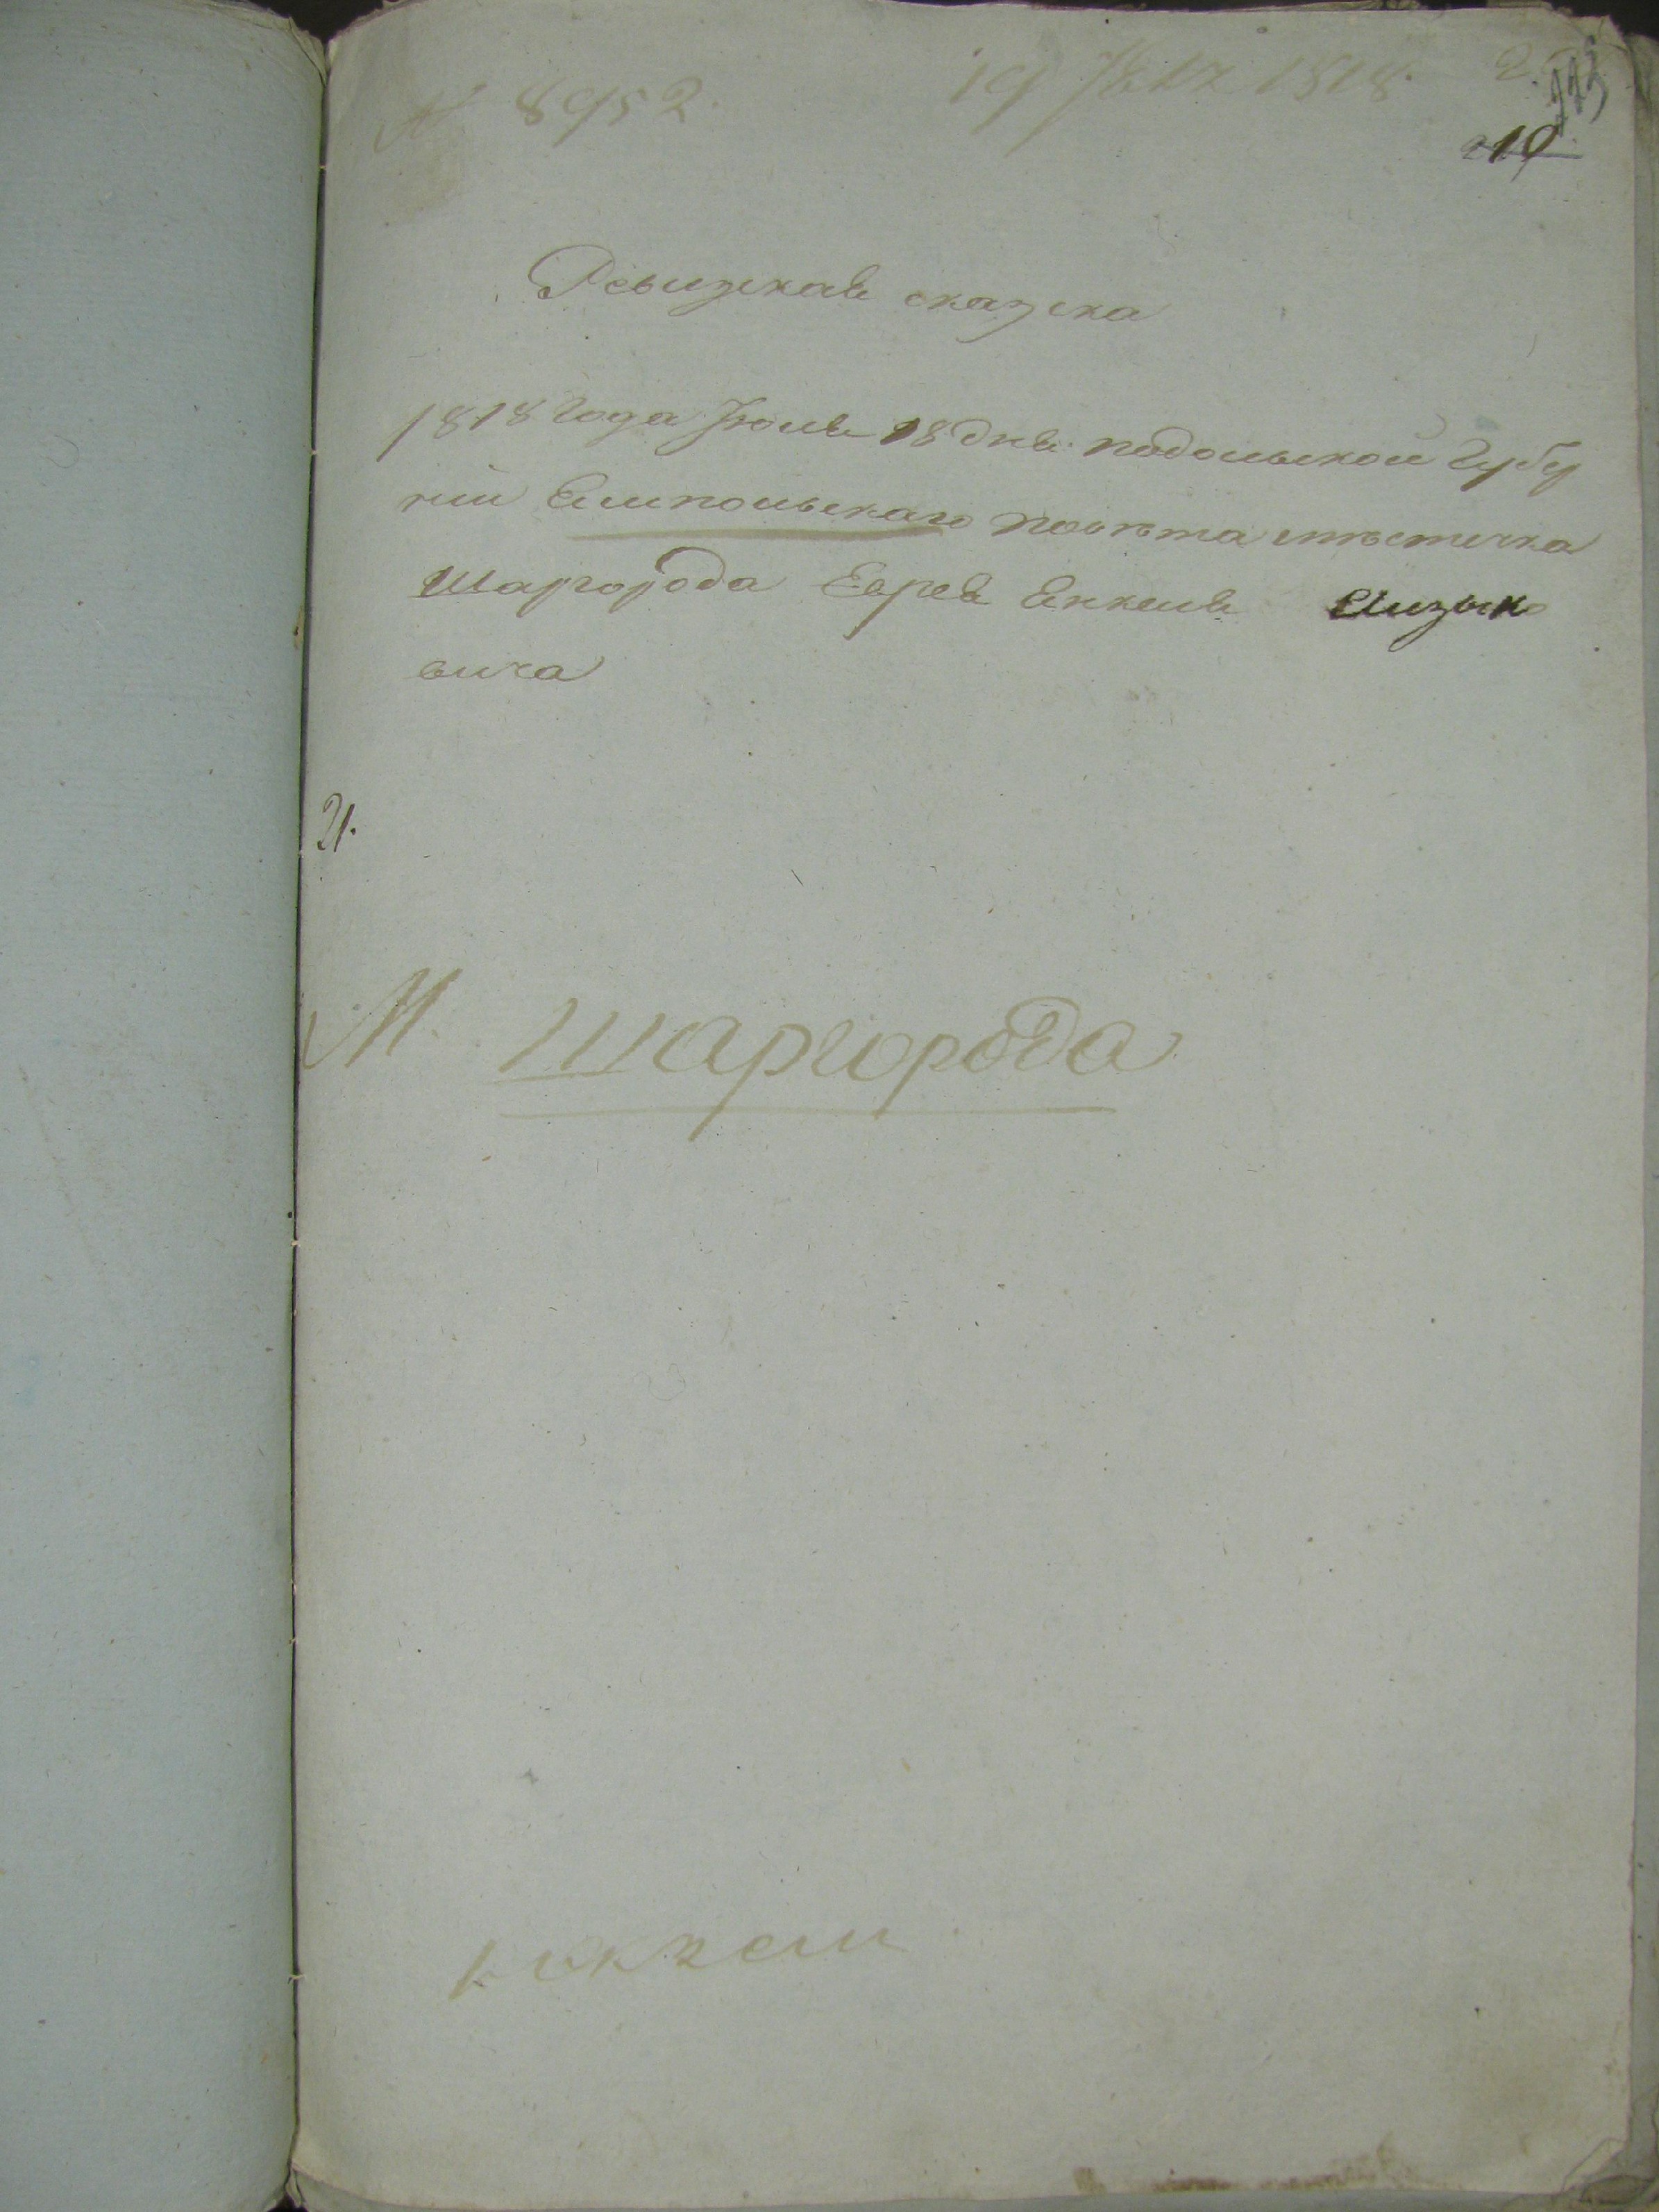 № 8952. 19 Юля 1818. 2
223
210
Ревизская сказка
1818 Года Июля 18 дня подольской Губер
нии Ямпольскаго повѣта мѣстечка
Шаргорода Еврея Янкеля Айзыко
вича
21.
М. Шаргорода